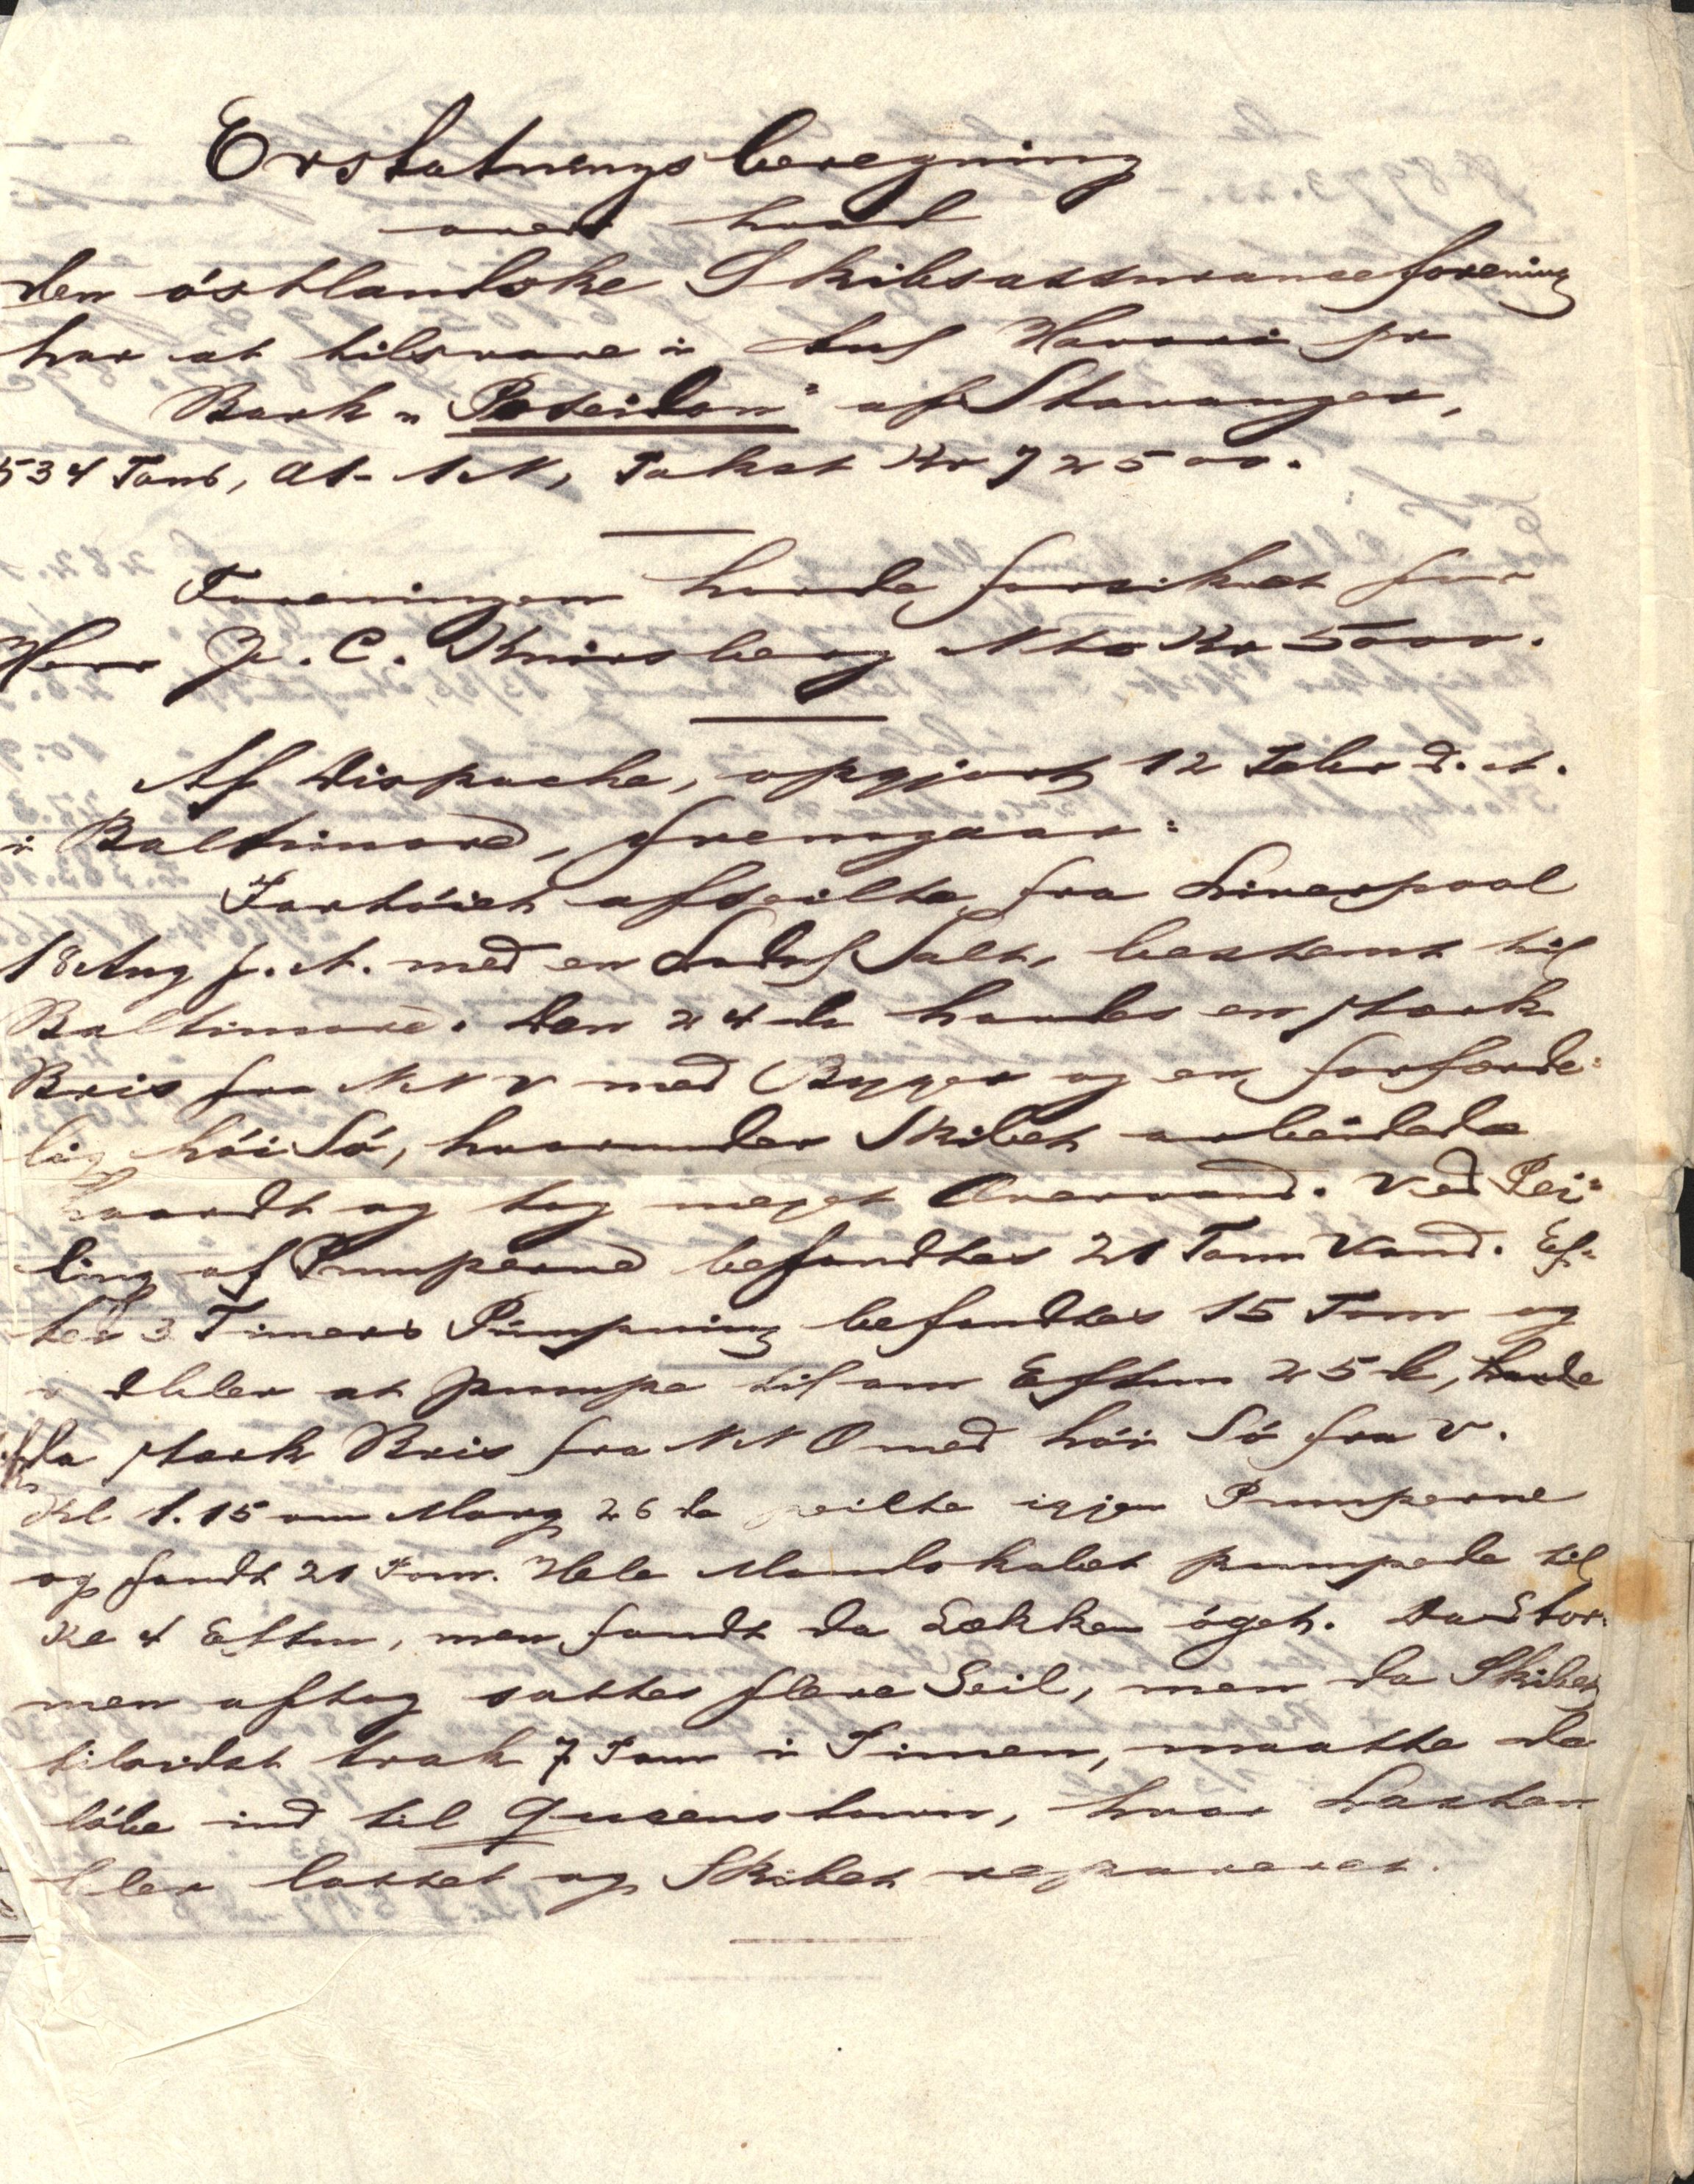 Erstatningsberegning
over hvad
den östlandske Skibsassuranceforening
har at tilsvare i Anl Havari pr
Bark „Poseidon" af Stavanger,
534 Tons, A1- 1.N, Takst Kr 72500.
Foreningen havde forsikret for
Herr J. C. Nto Kr 5000.
Af Dispache, opgjort 12 Febr d. A.
i Baltimore, fremgaar:
Fartöiet afseilte fra Liverpool
18 Aug f. A. med en Ladn Salt, bestemt til
Baltimore. Den 24 de havdes en stærk
Bris fra NNV med Byger og en forfærde-
lig höi Sö, hvorunder Skibet arbeidede
haardt og tog meget Overvand. Ved Pei-
ling af Pumperne befandtes 21 Tom Vand. Ef-
ter 3 Timers Pumpning befandtes 15 Tom og
at pumpe til om Eftm 25 de, havde
da stærk Bris fra NNO med höi Sö fra V.
Kl 1.15 om Morg 26 de peilte igjen Pumperne
og fandt 21 Tom. Hele Mandskabet pumpede til
Kl 4 Eftm, men fandt da Lækken öget. Da Stor-
men aftog sattes flere Seil, men da Skibet
tilsidst trak 7 Tom i Timen, maatte de
löbe ind til Queenstown, hvor Lasten
blev losset og Skibet repareret.